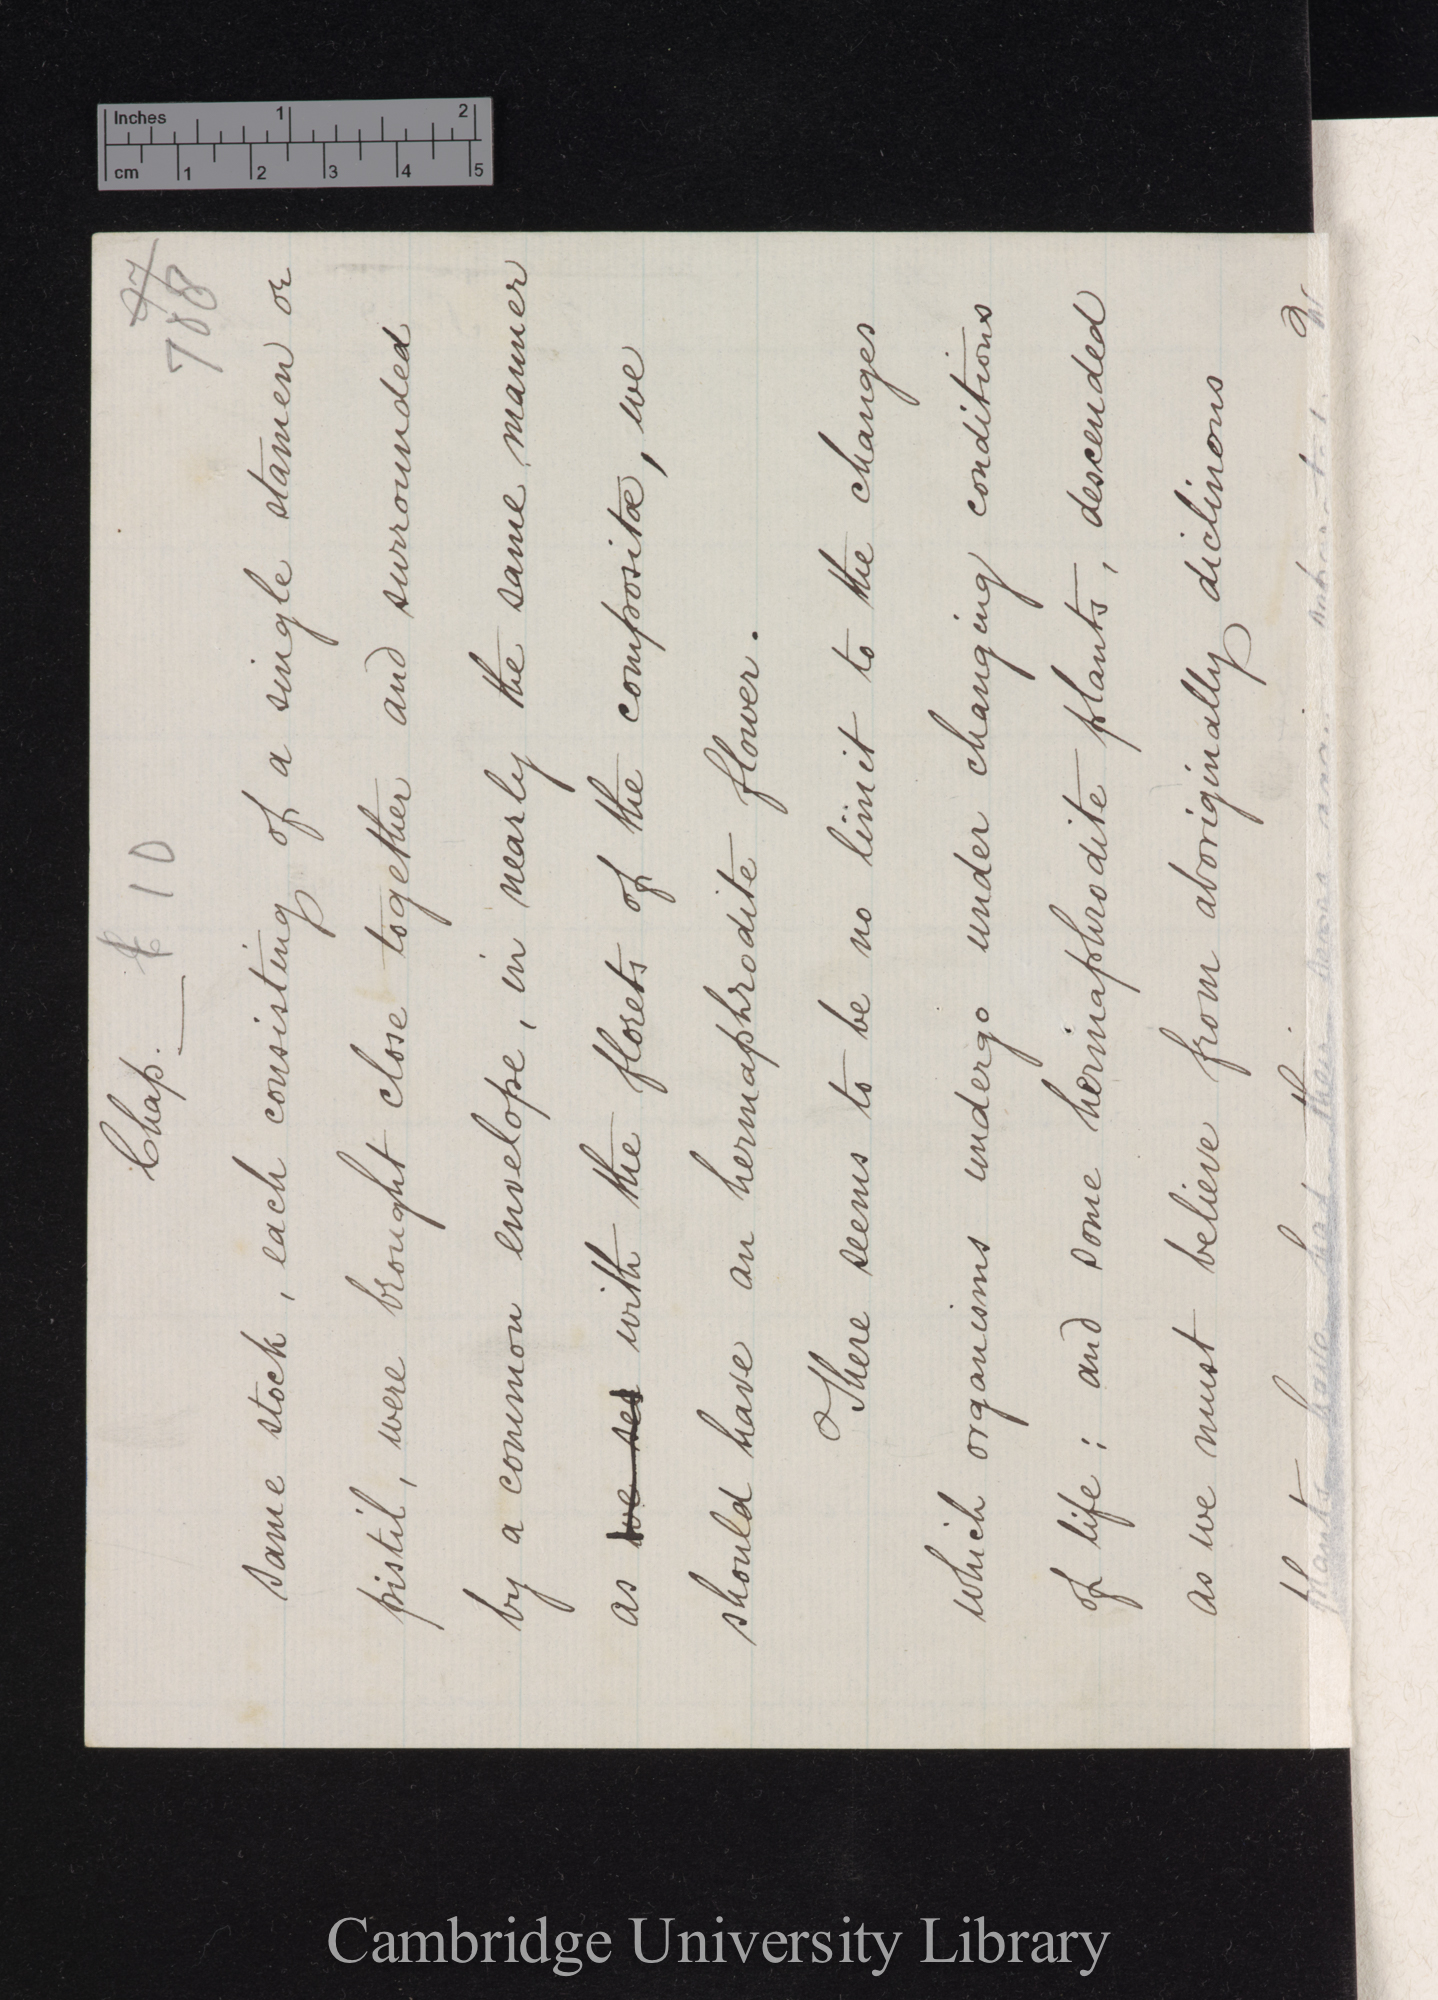 Inches 1 2
cm 1 2 3 4 5
Chap. 10
788
same stock, each consisting of a single stamen or
pistil, were brought close together and surrounded
by a common envelope, in nearly the same manner
as we see with the florets of the compositæ, we
should have an hermaphrodite flower.
There seems to be no limit to the changes
which organisms undergo under changing conditions
of life; and some hermaphrodite plants, descended
as we must believe from aboriginally diclinous
Cambridge University Library